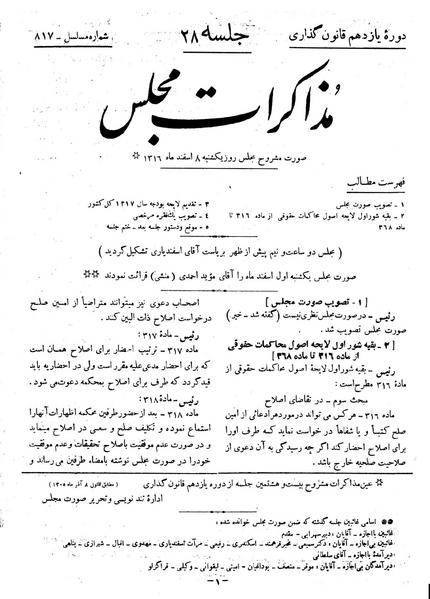 دورهٔ یازدهم قانون گذاری
جلسه ۲۸
شماره مسلسل - ۸۱۷
مذاکرات مجلس
صورت مشروح مجلس روز یکشنبه ۸ اسفند ماه ۱۳۱۶ ※
فهرست مطالب
۱ - تصویب صورت مجلس
۲ - بقیه شور اول لایحه اصول محاکمات حقوقی از ماده ۳۱۶ تا
ماده ۳۶۸
۳ - تقدیم لایحه بودجه سال ۱۳۱۷ کل کشور
۴ - تصویب یکفقره مرخصی
۵ - موقع و دستور جلسه بعد - ختم جلسه
( مجلس دو ساعت و نیم پیش از ظهر بریاست آقای اسفندیاری تشکیل گردید )
صورت مجلس یکشنبه اول اسفند ماه را آقای مؤید احمدی (منشی) قرائت نمودند ※※
[ ۱ - تصویب صورت مجلس ]
رئیس - در صورت مجلس نظری نیست (گفته شد - خیر)
صورت مجلس تصویب شد.
[ ۲ - بقیه شور اول لایحه اصول محاکمات حقوقی
از ماده ۳۱۶ تا ماده ۳۶۸ ]
رئیس - بقیه شور اول لایحهٔ اصول محاکمات حقوقی از
مادهٔ ۳۱۶ مطرح است:
مبحث سوم - در تقاضای اصلاح
ماده ۳۱۶ - هر کس می تواند در مورد هر ادعائی از امین
صلح کتباً و یا شفاهاً در خواست نماید که طرف او را
برای اصلاح احضار کند اگر چه رسیدگی به آن دعوی از
صلاحیت صلحیه خارج باشد.
اصحاب دعوی نیز میتوانند متراضیاً از امین صلح
درخواست اصلاح ذات البین کنند.
رئیس - مادهٔ ۳۱۷:
ماده ۳۱۷ - ترتیب احضار برای اصلاح همان است
که برای احضار مدعی علیه مقرر است ولی در احضاریه باید
قید گردد که طرف برای اصلاح بمحکمه دعوت می شود.
رئیس - ماده ۳۱۸:
ماده ۳۱۸ - بعد از حضور طرفین محکمه اظهارات آنها را
استماع نموده و تکلیف صلح و سعی در اصلاح مینماید
و در صورت عدم موفقیت باصلاح تحقیقات و عدم موفقیت
خود را در صورت مجلس نوشته بامضاء طرفین می رساند و
※ عین مذاکرات مشروح بیست و هشتمین جلسه از دوره یازدهم قانون گذاری (مطابق قانون ۸ آذر ماه ۱۳۰۵)
اداره تند نویسی و تحریر صورت مجلس
※※ اسامی غائبین جلسه گذشته که ضمن صورت مجلس خوانده شده:
غائبین با اجازه - آقایان: دبیر سهرابی - مقدم
غائبین بی اجازه - آقایان: دکتر سمیعی - غیر فرهمند - اسکندری - رفیعی - مرآت اسفندیاری - مهدوی - اقبال - شیرازی - پناهی
دیر آمدهٔ با اجازه - آقای سلطانی
دیر آمدگان بی اجازه - آقایان: موقر - منصف - بوداغیان - امینی - لیقوانی - وکیلی - قراگزلو
-۱-